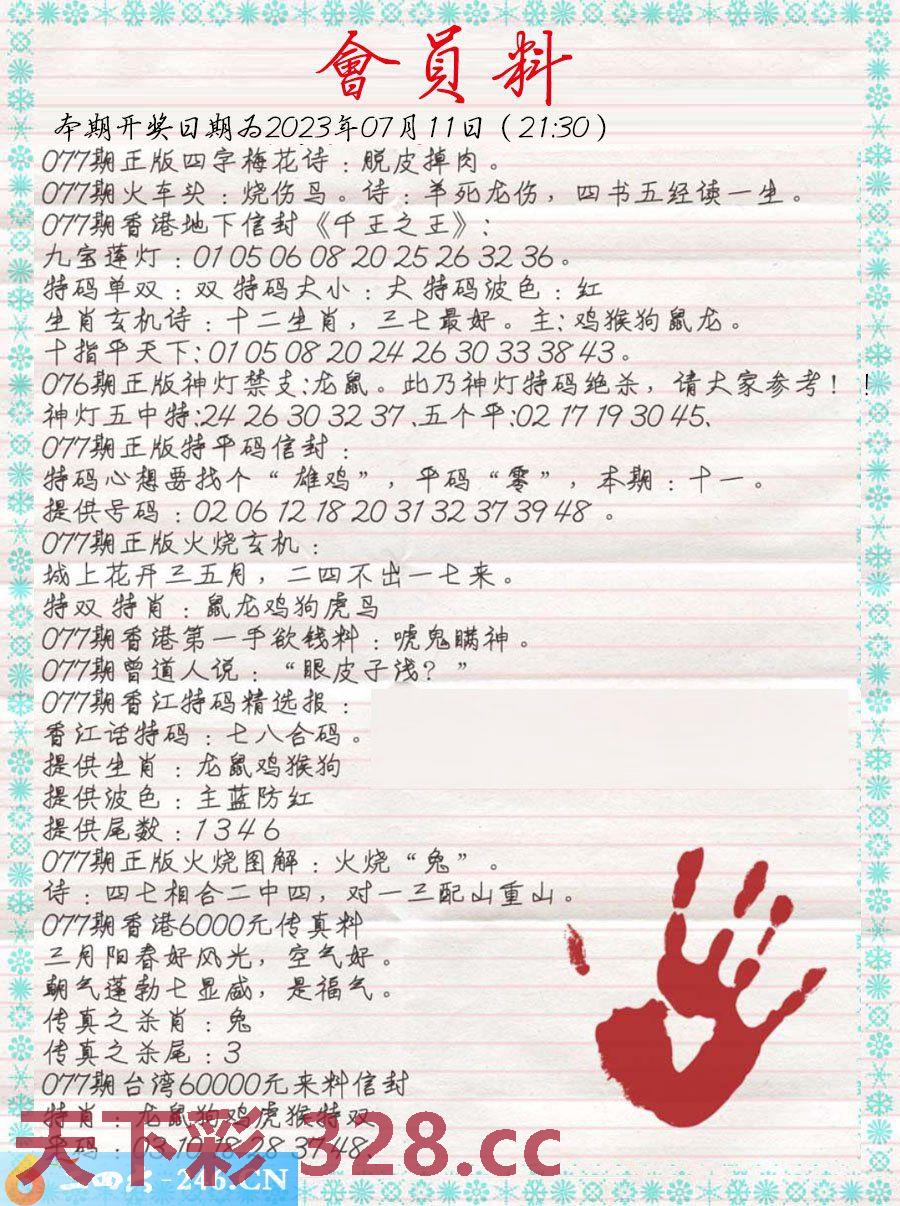 會員料
本期开奖日期为2023年07月11日（21:30）
077期正版四字梅花诗：脱皮掉肉。
077期火车头：烧伤鸟。诗：羊死龙伤，四书五经读一生。
077期香港地下信封《千王之王》：
九宝莲灯：01 05 06 08 20 25 26 32 36。
特码单双：双 特码大小：大 特码波色：红
生肖玄机诗：十二生肖，三七最好。主：鸡猴狗鼠龙。
十指平天下：01 05 08 20 24 26 30 33 38 43。
076期正版神灯禁支：龙鼠。此乃神灯特码绝杀，请大家参考！！
神灯五中特：24 26 30 32 37、五个平：02 17 19 30 45、
077期正版特平码信封：
特码心想要找个“雄鸡”，平码“零”，本期：十一。
提供号码：02 06 12 18 20 31 32 37 39 48 。
077期正版火烧玄机：
城上花开三五月，二四不出一七来。
特双 特肖：鼠龙鸡狗虎马
077期香港第一手欲钱料：唬鬼瞒神。
077期曾道人说：“眼皮子浅？”
077期香江特码精选报：
香江话特码：七八合码。
提供生肖：龙鼠鸡猴狗
提供波色：主蓝防红
提供尾数：1 3 4 6
077期正版火烧图解：火烧“兔”。
诗：四七相合二中四，对一三配山重山。
077期香港6000元传真料
三月阳春好风光，空气好。
朝气蓬勃七显感，是福气。
传真之杀肖：兔
传真之杀尾：3
077期台湾60000元来料信封
特肖：龙鼠狗鸡虎猴特双
码：03 10 18 28 37 48、
天下彩 328.cc
二四六-246.CN